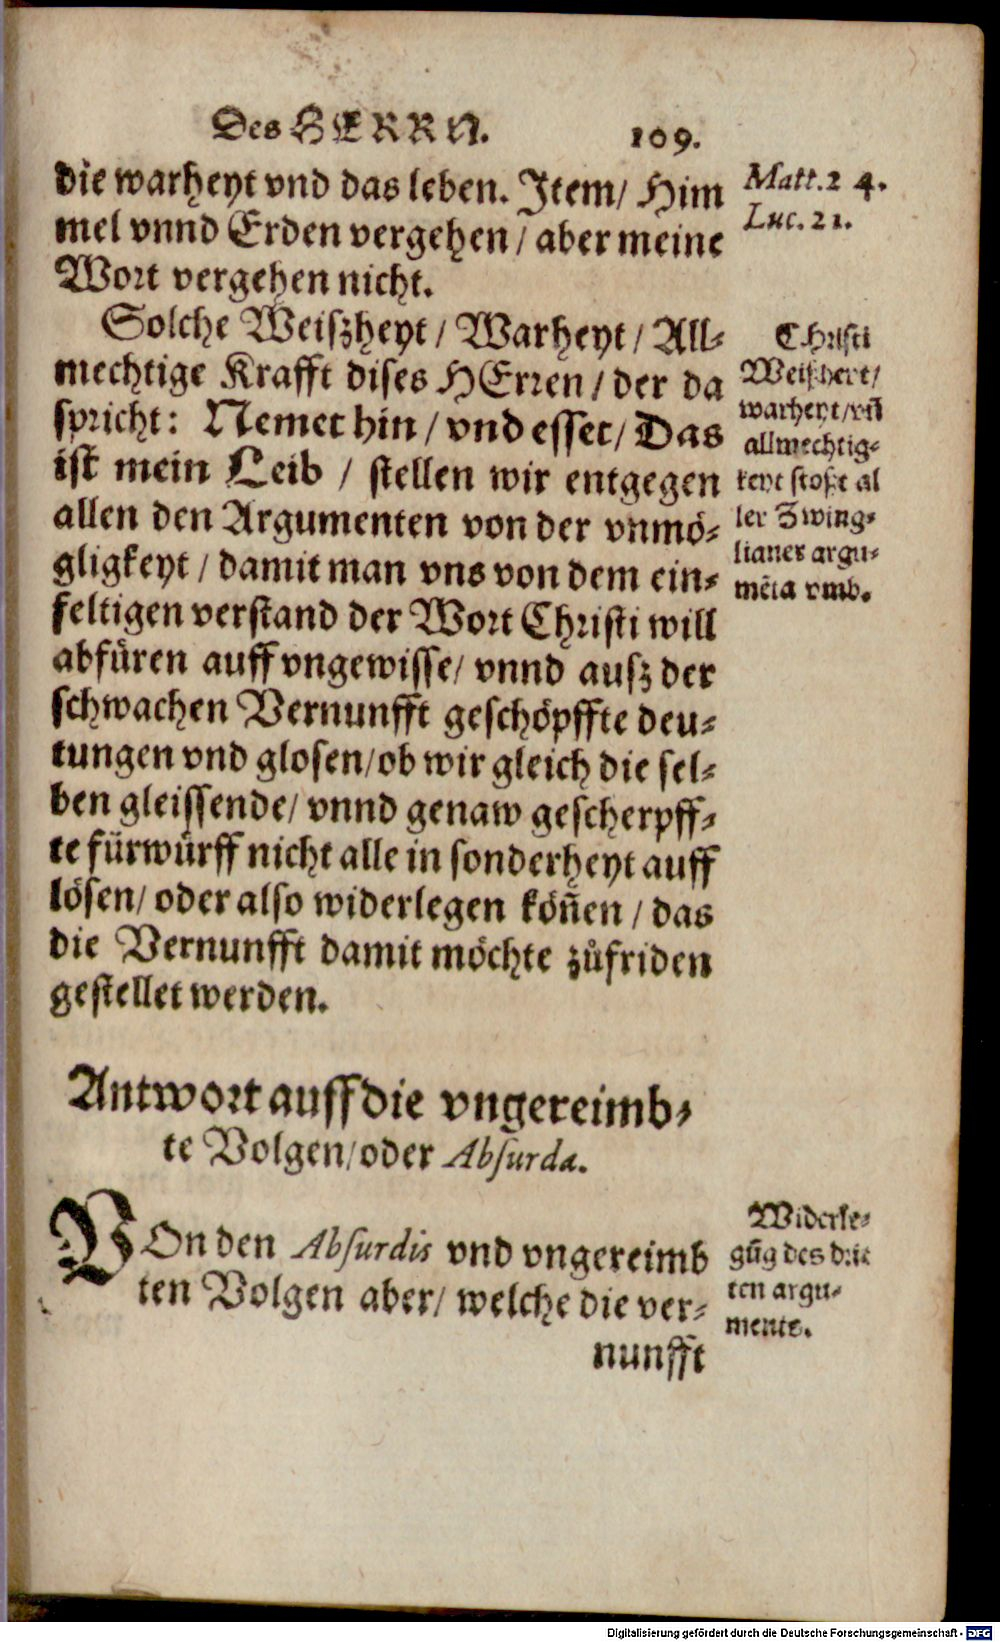 Des HERRN. 109.
die warheyt vnd das leben. Item/ Him
mel vnnd Erden vergehen/ aber meine
Wort vergehen nicht.
Matt. 24.
Luc. 21.
Solche Weiſzheyt/ Warheyt/ All⸗
mechtige Krafft diſes HErren/ der da
ſpricht: Nemet hin/ vnd eſſet/ Das
iſt mein Leib/ ſtellen wir entgegen
allen den Argumenten von der vnmö⸗
gligkeyt/ damit man vns von dem ein⸗
feltigen verſtand der Wort Chriſti will
abfüren auff vngewiſſe/ vnnd auſz der
ſchwachen Vernunfft geſchöpffte deu⸗
tungen vnd gloſen/ ob wir gleich die ſel⸗
ben gleiſſende/ vnnd genaw geſcherpff⸗
te fürwürff nicht alle in ſonderheyt auff
löſen/ oder alſo widerlegen köñen/ das
die Vernunfft damit möchte zůfriden
geſtellet werden.
Chriſti
Weißheyt/
warheyt/ vñ
allmechtig⸗
keyt ſtoßt al
ler Zwing⸗
lianer argu⸗
mēta vmb.
Antwort auff die vngereimb⸗
te Volgen/ oder Abſurda.
VOn den Abſurdis vnd vngereimb
ten Volgen aber/ welche die ver⸗
nunfft
Widerle⸗
gūg des drit
ten argu⸗
ments.
Digitalisierung gefördert durch die Deutsche Forschungsgemeinschaft - DFG